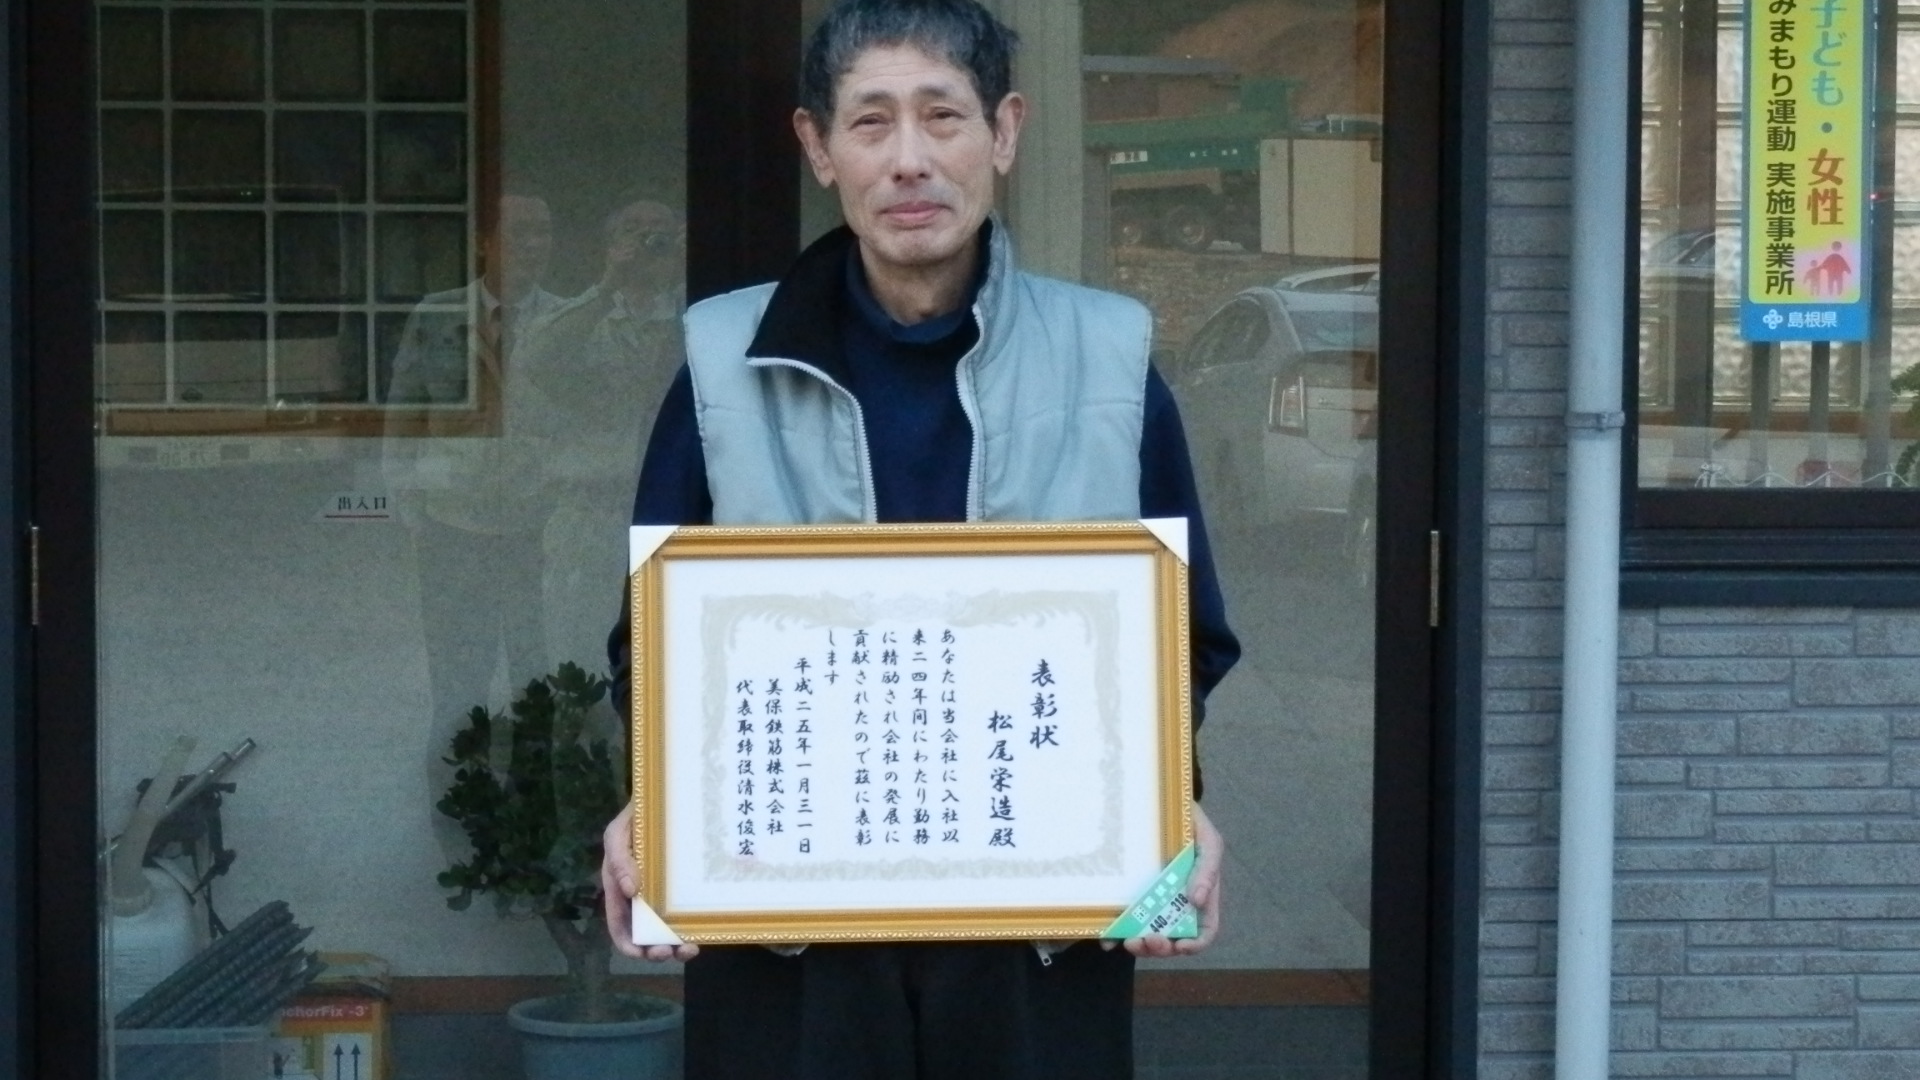 表彰状
松尾栄造殿
あなたは当会社に入社以
来二四年間にわたり勤務
に精励され会社の発展に
貢献されたので茲に表彰
します
平成二五年一月三一日
美保鉄筋株式会社
代表取締役清水俊宏
子ども・女性
みまもり運動 実施事業所
島根県
出入口
440
318
nchorFix -3